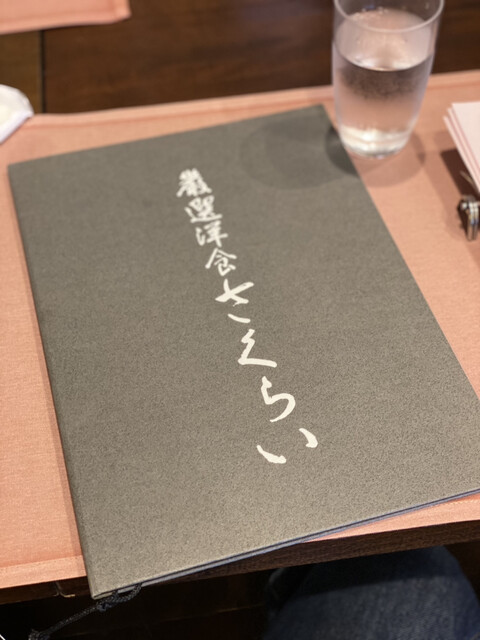 嚴選洋食さくらい